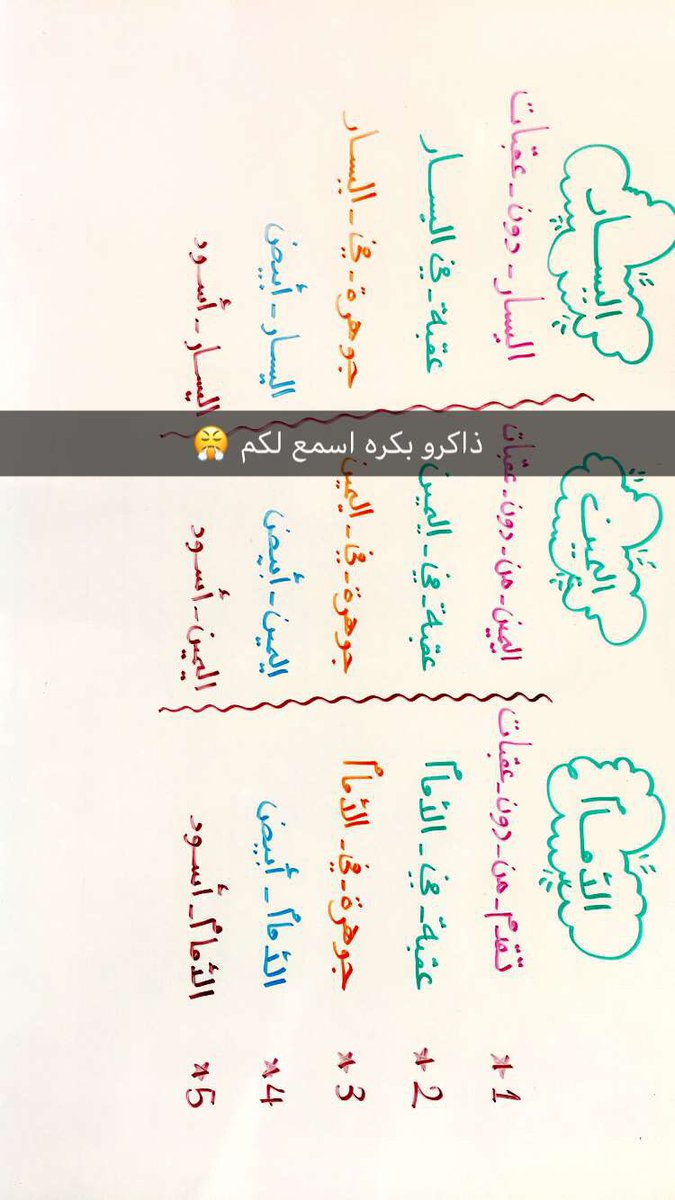 ذاكرو بكره اسمع لكم 😤
الأمام اليمين اليسار
1* تقدم - من - دون - عقبات اليمين - من - دون - عقبات اليسار - دون - عقبات
2* عقبة - في - الأمام عقبة - في - اليمين عقبة - في اليسار
3* جوهرة - في - الأمام جوهرة - في - اليمين جوهرة - في - اليسار
4* الأمام - أبيض اليمين - أبيض اليسار - أبيض
5* الأمام - أسود اليمين - أسود اليسار - أسود